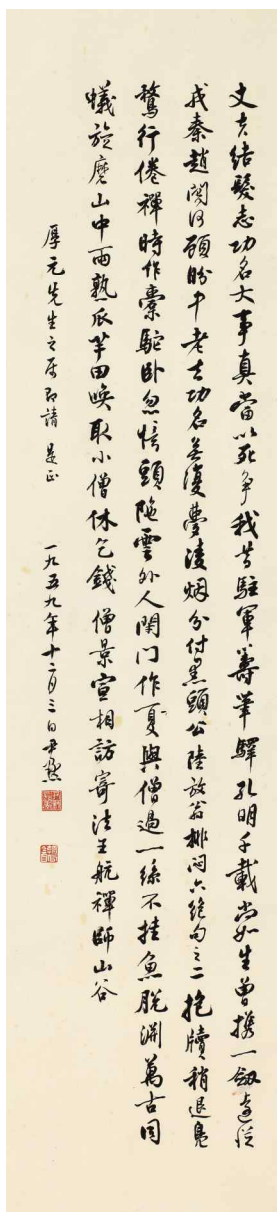 丈夫結髮志功名大事真當以死爭我昔駐軍籌筆驛孔明千載尚如生曾攜一劍遠從
戎秦趙關河顧盼中老去功名無復夢淩烟分付黑頭公陸放翁排悶六絕句之二抱牘稍退鳧
鶩行倦禪時作橐駝臥忽憶頭陀雲外人閉門作夏與僧過一絲不挂魚脫淵萬古同
蟻旋磨山中雨熟瓜芋田喚取小僧休乞錢僧景宣相訪寄法王航禪師山谷
厚元先生之屬即請是正 一九五九年十二月三日尹默